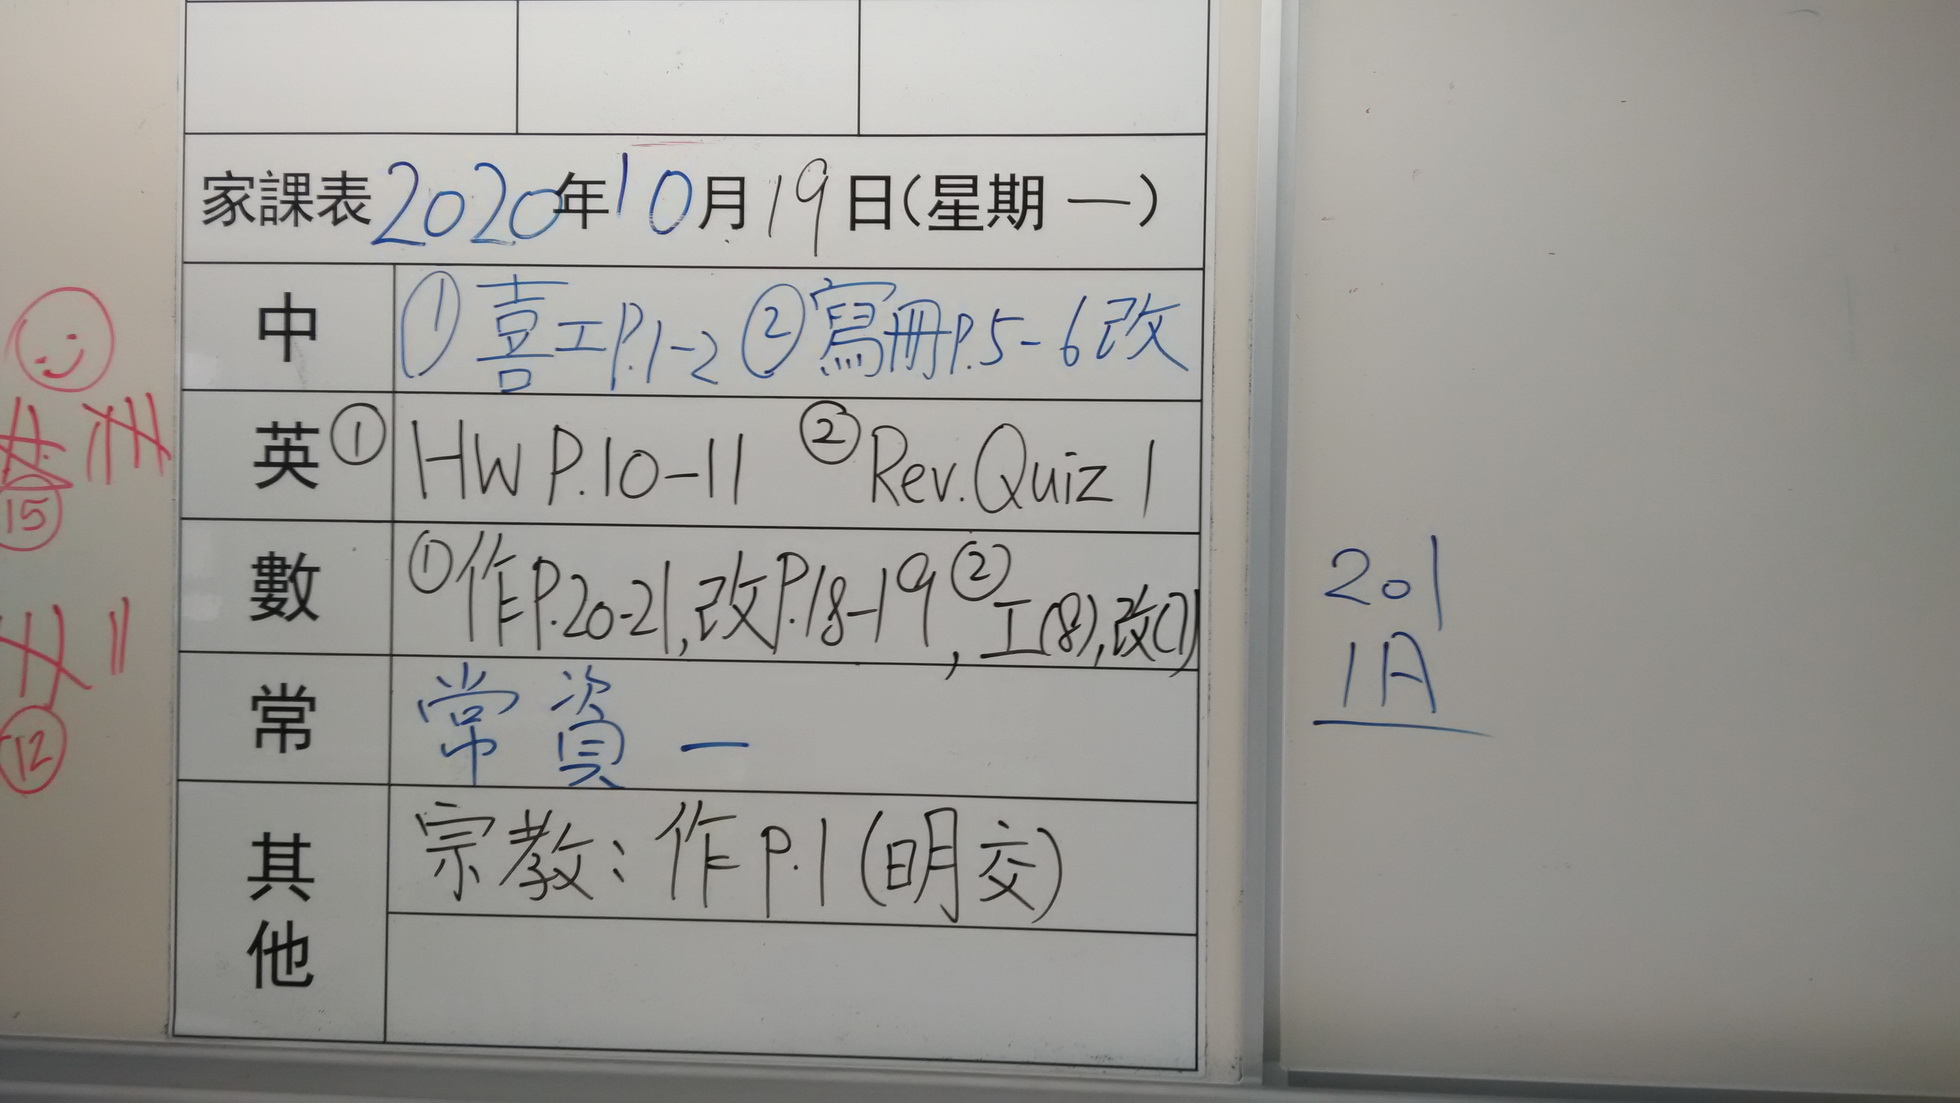 家課表2020年10月19日(星期一)
中 ①喜工P.1-2 ②寫冊P.5-6改
英 ①HW P.10-11 ②Rev. Quiz 1
數 ①作P.20-21,改P.18-19, ②工(8),改(7)
常 常資一
其他 宗教:作P.1(明交)
15
12
201
1A